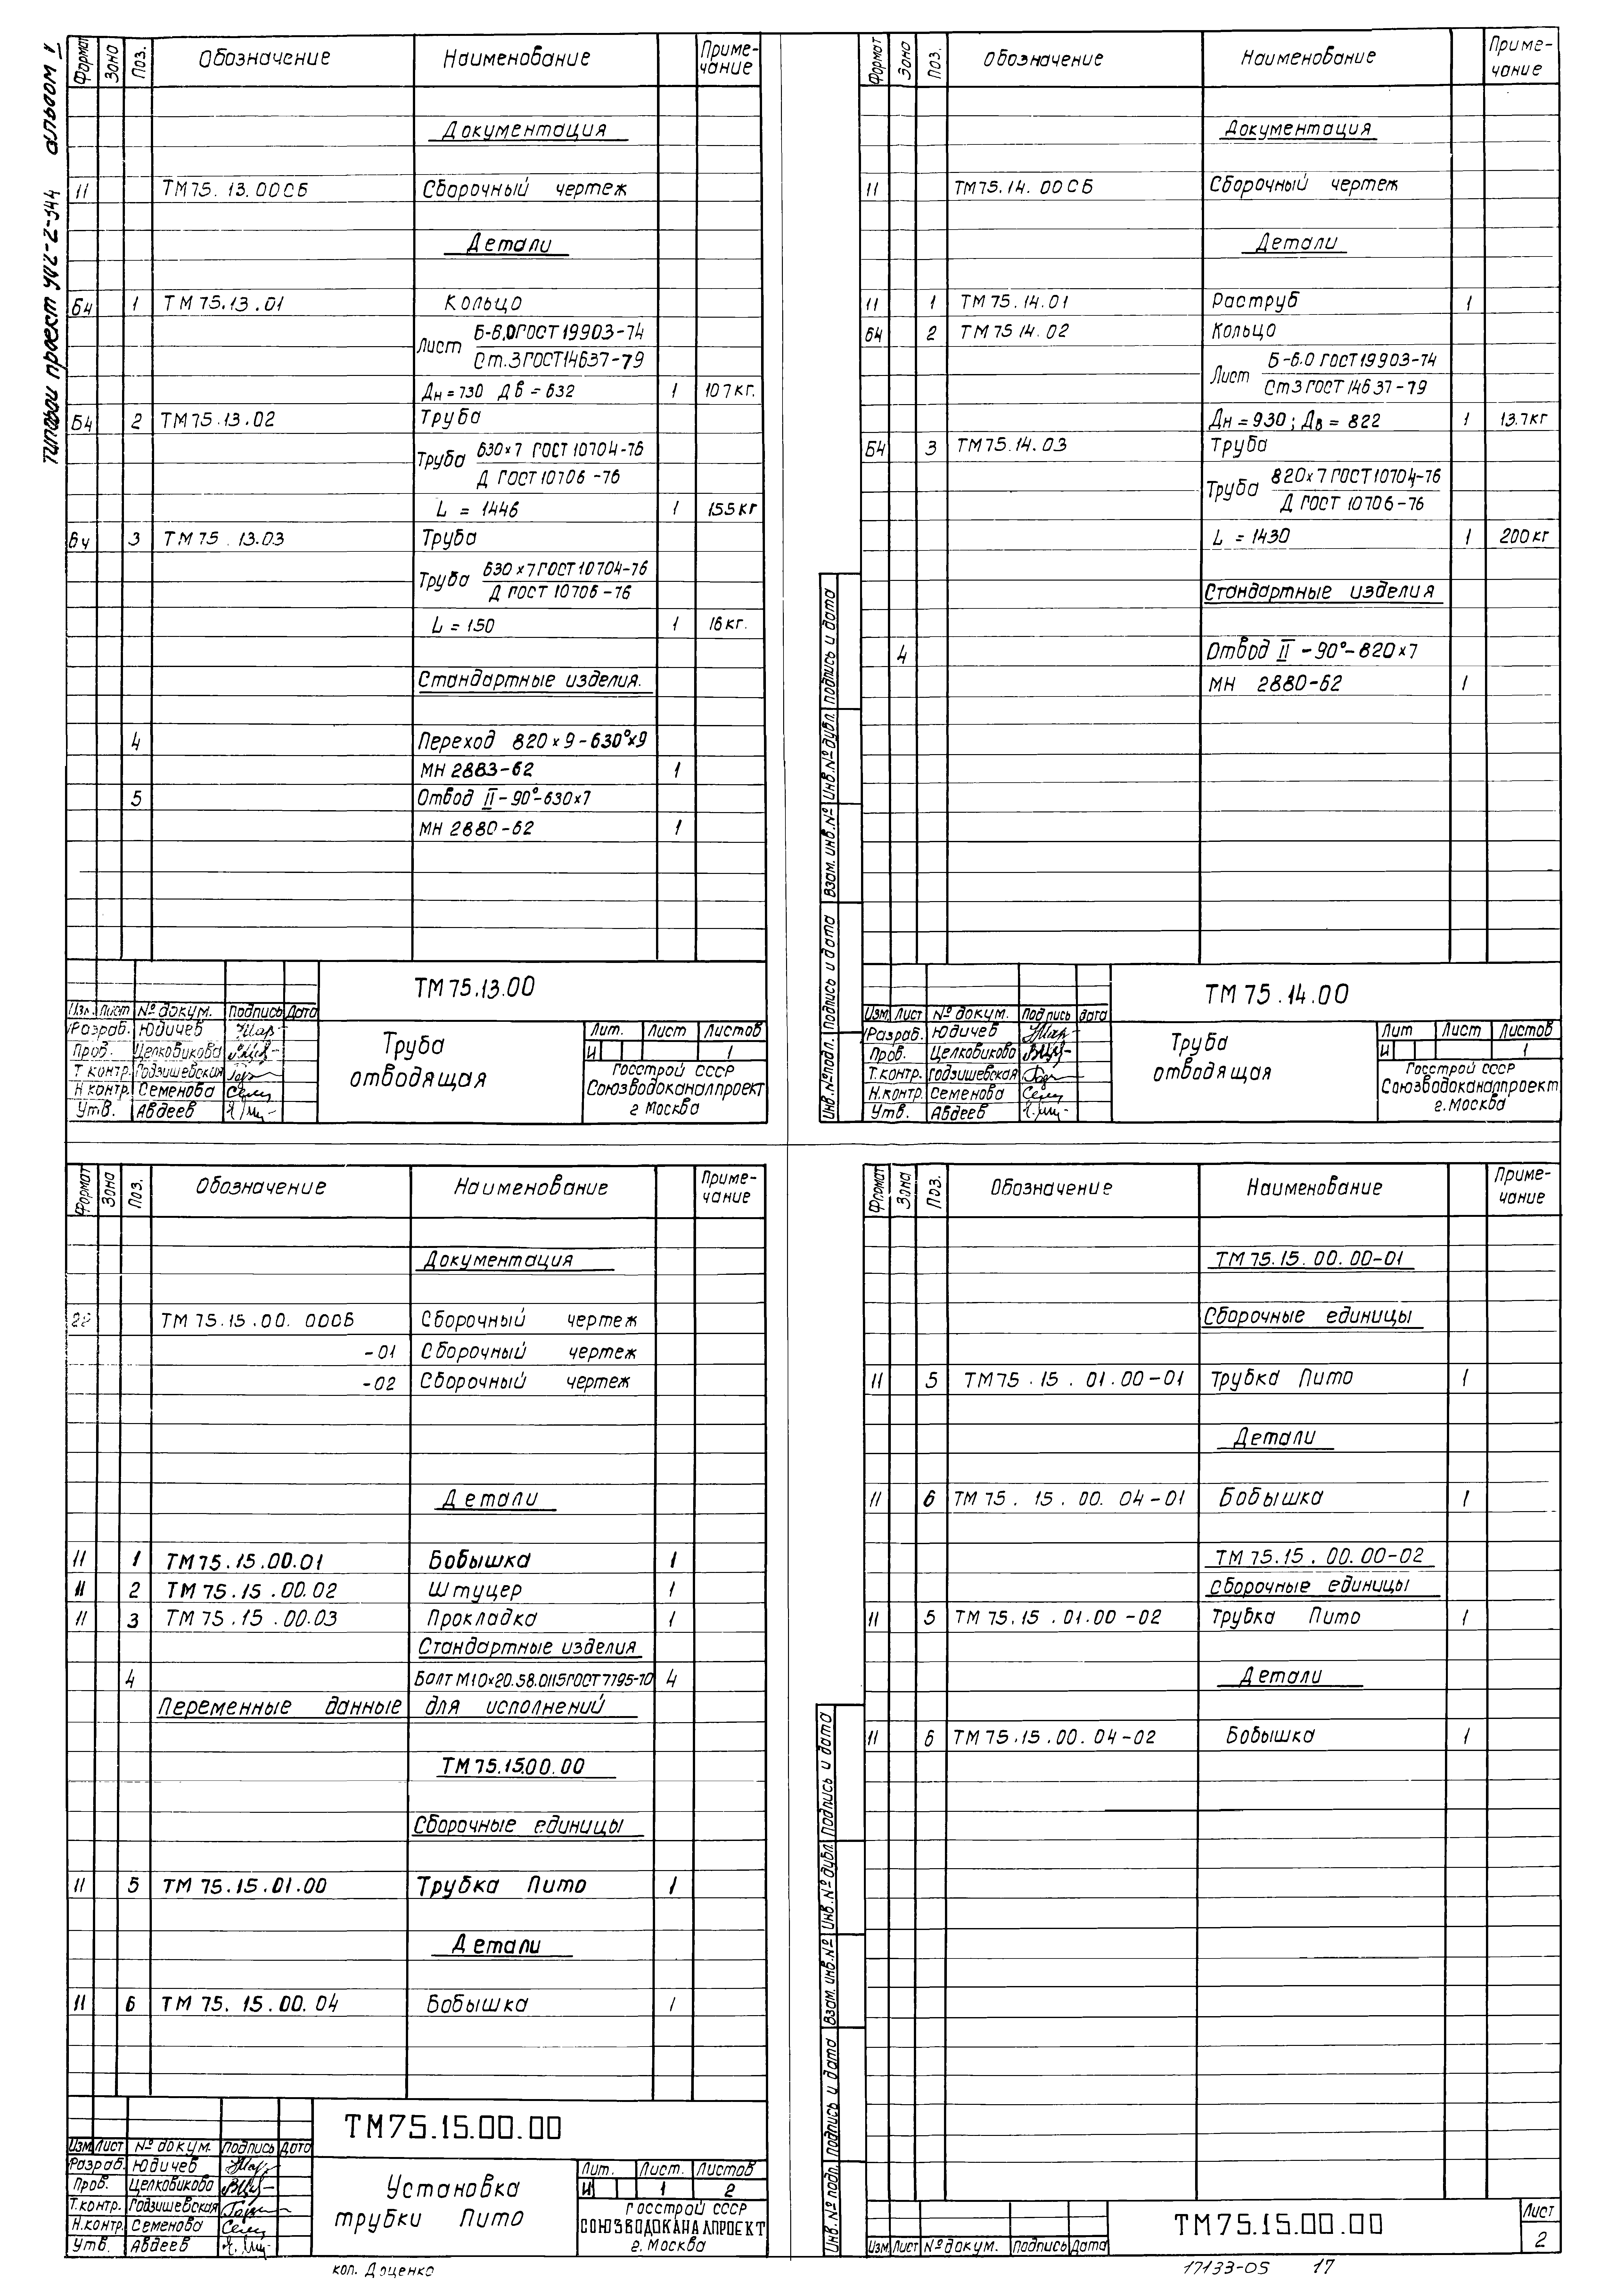 Типовой проект 902-2-344 альбом V
Формат Зона Поз. Обозначение Наименование Приме-
чание
Документация
11 ТМ75.13.00СБ Сборочный чертеж
Детали
Б4 1 ТМ75.13.01 Кольцо
Лист Б-6.0ГОСТ19903-74
Ст.3ГОСТ14637-79
Дн=730 Дв=632 1 10.7кг.
Б4 2 ТМ75.13.02 Труба
Труба 630х7 ГОСТ10704-76
Д ГОСТ10706-76
L = 1446 1 155кг
Б4 3 ТМ75.13.03 Труба
Труба 630х7ГОСТ10704-76
Д ГОСТ 10706-76
L = 150 1 16кг.
Стандартные изделия.
4 Переход 820х9-630х9
МН 2883-62 1
5 Отвод II-90°-630х7
МН 2880-62 1
ТМ75.13.00
Изм. Лист № докум. Подпись Дата
Разраб. Юдичев
Пров. Целковикова
Т.контр. Годзишевская
Н.контр. Семенова
Утв. Авдеев
Труба
отводящая
Лит. Лист Листов
И 1
Госстрой СССР
Союзводоканалпроект
г Москва
Формат Зона Поз. Обозначение Наименование Приме-
чание
Документация
11 ТМ75.14.00СБ Сборочный чертеж
Детали
11 1 ТМ75.14.01 Раструб 1
Б4 2 ТМ75 14.02 Кольцо
Лист Б-6.0 ГОСТ19903-74
Ст3 ГОСТ 14637-79
Дн=930; Дв=822 1 13.7кг
Б4 3 ТМ75.14.03 Труба
Труба 820х7 ГОСТ10704-76
Д ГОСТ 10706-76
L = 1430 1 200кг
Стандартные изделия
4 Отвод II-90°-820х7
МН 2880-62 1
Инв.№подл. Подпись и дата Взам.инв.№ Инв.№дубл. Подпись и дата
ТМ75.14.00
Изм. Лист № докум. Подпись дата
Разраб. Юдичев
Пров. Целковикова
Т.контр. Годзишевская
Н.контр. Семенова
Утв. Авдеев
Труба
отводящая
Лит Лист Листов
И 1
Госстрой СССР
Союзводоканалпроект
г.Москва
Формат Зона Поз. Обозначение Наименование Приме-
чание
Документация
22 ТМ75.15.00.00СБ Сборочный чертеж
-01 Сборочный чертеж
-02 Сборочный чертеж
Детали
11 1 ТМ75.15.00.01 Бобышка 1
11 2 ТМ75.15.00.02 Штуцер 1
11 3 ТМ75.15.00.03 Прокладка 1
Стандартные изделия
4 Болт М10х20.58.0115ГОСТ7795-70 4
Переменные данные для исполнений
ТМ75.15.00.00
Сборочные единицы
11 5 ТМ75.15.01.00 Трубка Пито 1
Детали
11 6 ТМ75.15.00.04 Бобышка 1
ТМ75.15.00.00
Изм Лист № докум. Подпись Дата
Разраб. Юдичев
Пров. Целковикова
Т.контр. Годзишевская
Н.контр. Семенова
Утв. Авдеев
Установка
трубки Пито
Лит. Лист. Листов
И 1 2
Госстрой СССР
СОЮЗВОДОКАНАЛПРОЕКТ
г.Москва
Формат Зона Поз. Обозначение Наименование Приме-
чание
ТМ75.15.00.00-01
Сборочные единицы
11 5 ТМ75.15.01.00-01 Трубка Пито 1
Детали
11 6 ТМ75.15.00.04-01 Бобышка 1
ТМ75.15.00.00-02
Сборочные единицы
11 5 ТМ75.15.01.00-02 Трубка Пито 1
Детали
11 6 ТМ75.15.00.04-02 Бобышка 1
Инв.№подл. Подпись и дата Взам.инв.№ Инв.№дубл. Подпись и дата
Изм Лист № докум. Подпись Дата
ТМ75.15.00.00
Лист
2
коп. Доценко
17133-05 17